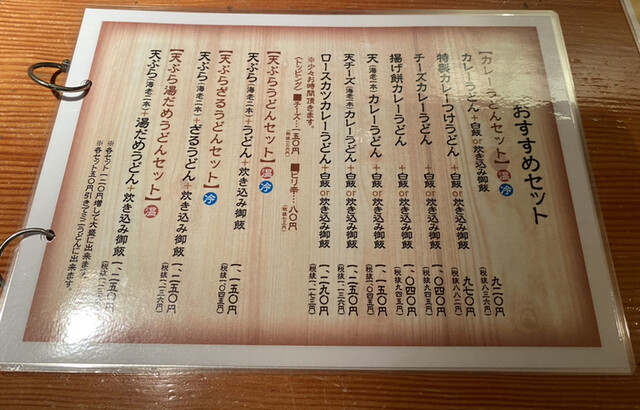 おすすめセット
【カレーうどんセット】温 冷
カレーうどん+白飯or炊き込み御飯 九二〇円
(税抜八三六円)
特製カレーつけうどん+白飯or炊き込み御飯 九七〇円
(税抜八八二円)
チーズカレーうどん+白飯or炊き込み御飯 一、〇四〇円
(税抜九四五円)
揚げ餅カレーうどん+白飯or炊き込み御飯 一、〇四〇円
(税抜九四五円)
天(海老一本)カレーうどん+白飯or炊き込み御飯 一、一五〇円
(税抜一、〇四五円)
天チーズ(海老一本)カレーうどん+白飯or炊き込み御飯 一、二五〇円
(税抜一、一三六円)
ロースカツカレーうどん+白飯or炊き込み御飯 一、二九〇円
(税抜一、一七三円)
※少々お時間頂きます。
(トッピング)■チーズ…一五〇円 ■ピリ辛…八〇円
【天ぷらうどんセット】温 冷
天ぷら(海老一本)+うどん+炊き込み御飯 一、一五〇円
(税抜一、〇四五円)
【天ぷらざるうどんセット】冷
天ぷら(海老一本)+ざるうどん+炊き込み御飯 一、一五〇円
(税抜一、〇四五円)
【天ぷら湯だめうどんセット】温
天ぷら(海老一本)+湯だめうどん+炊き込み御飯 一、二五〇円
(税抜一、一三六円)
※各セット一二〇円増しで大盛に出来ます。
※各セット五〇円引きでミニうどんに出来ます。